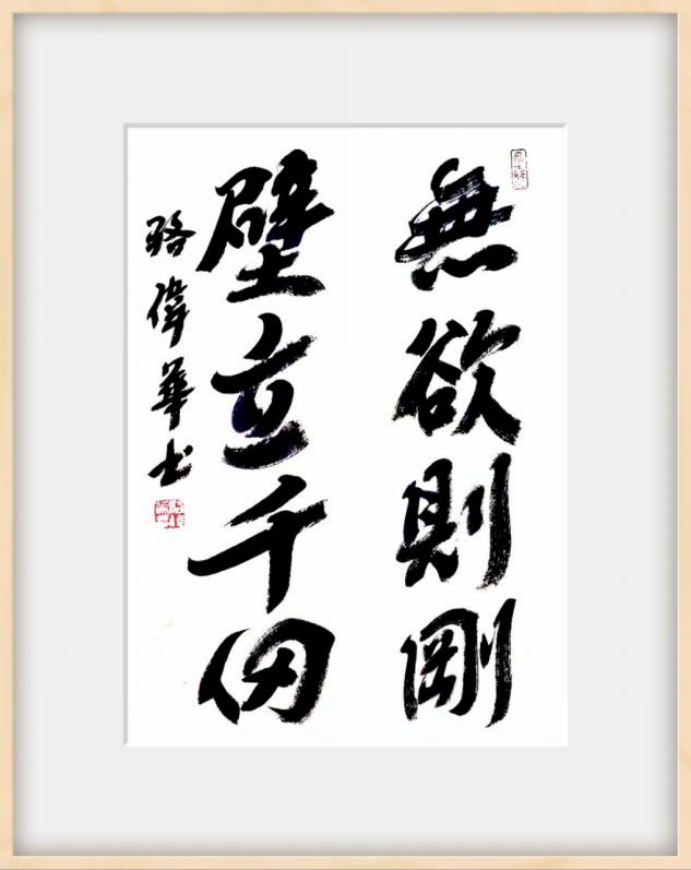 無欲則剛
壁立千仞
骆偉華书